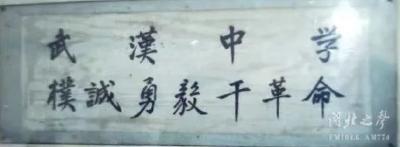 武漢中学
樸誠勇毅干革命
闸北之声
FM100.6 AM774